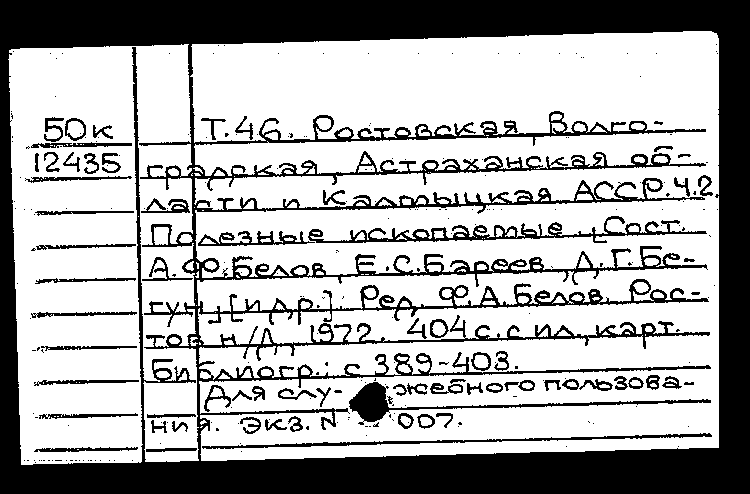 50к Т.46. Ростовская, Волго-
12435 градская, Астраханская об-
ласти и Калмыцкая АССР.Ч.2.
Полезные ископаемые. [Сост.
А.Ф.Белов, Е.С.Бареев, Д.Г.Бе-
гун, [и др.]. Ред. Ф.А.Белов. Рос-
тов н/Д, 1972. 404 с. с ил., карт.
Библиогр.: с 389-403.
Для слу- жебного пользова-
ния. Экз. N 007.